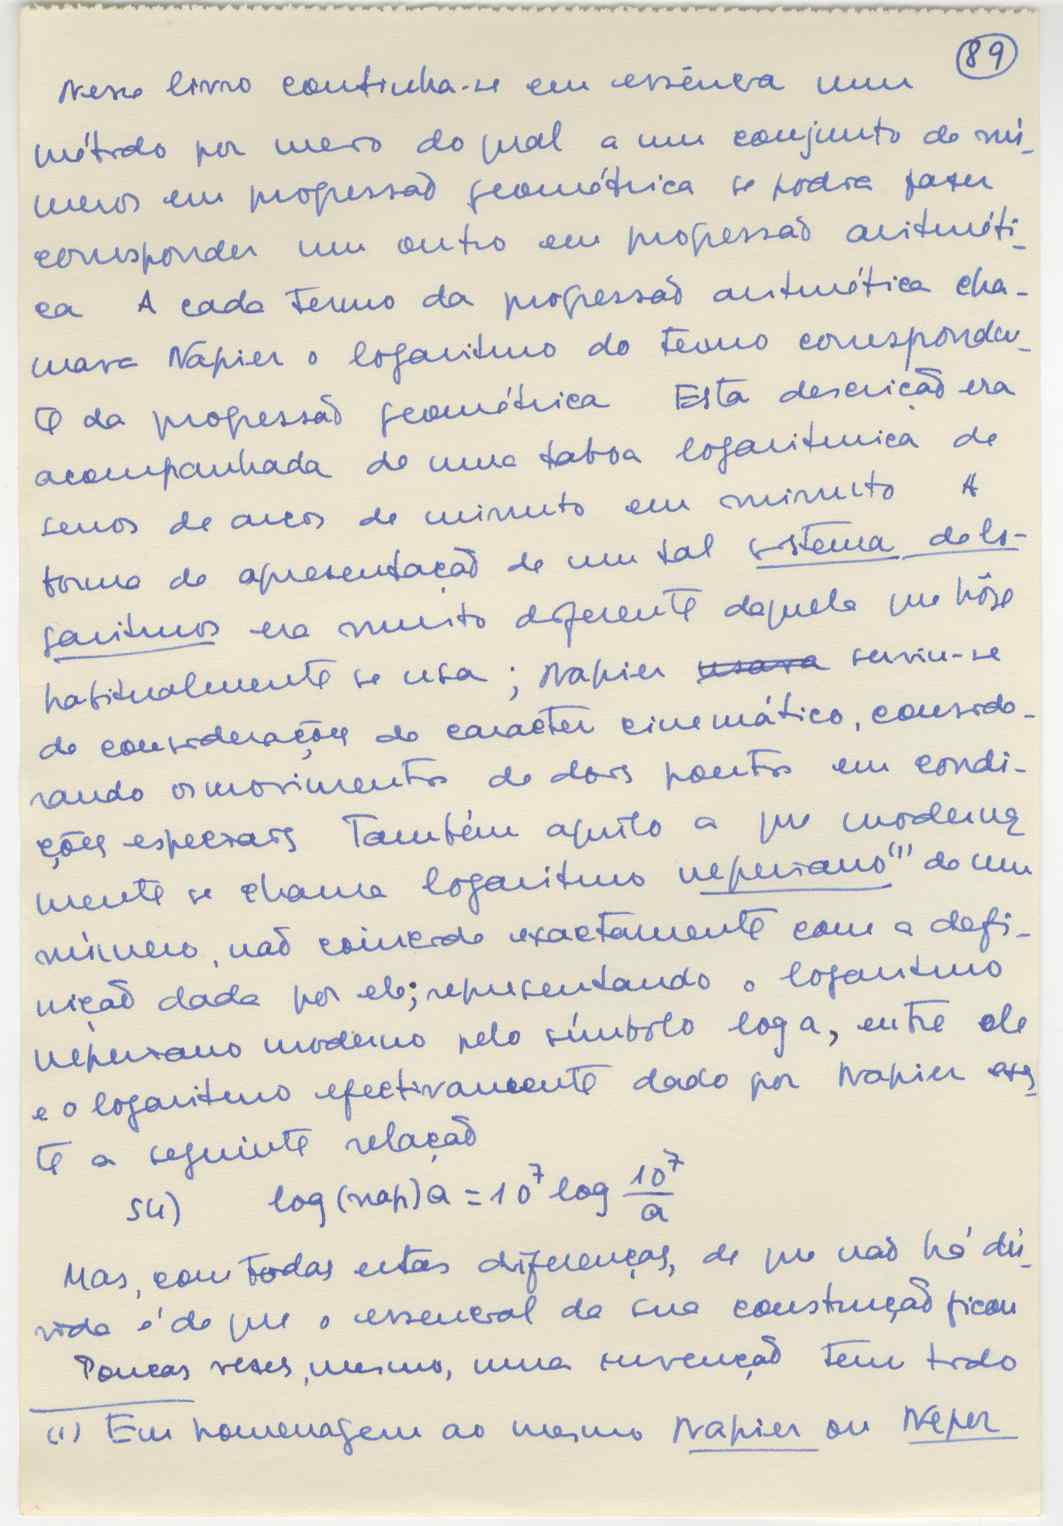 89
Nesse livro continha-se em essência um
método por meio do qual a um conjunto de nú-
meros em progressão geométrica se podia fazer
corresponder um outro em progressão aritméti-
ca A cada termo da progressão aritmética cha-
mava Napier o logaritmo do termo corresponden-
te da progressão geométrica Esta descrição era
acompanhada de uma taboa logaritmica de
senos de arcos de minuto em minuto A
forma de apresentação de um tal sistema de lo-
garitmos era muito diferente daquela que hôje
habitualmente se usa ; Napier usava serviu-se
de considerações de caracter cinemático, conside-
rando os movimentos de dois pontos em condi-
ções especiais Também aquilo a que moderna
mente se chama logaritmo neperiano (1) de um
número, não coincide exactamente com a defi-
nição dada por ele; representando o logaritmo
neperiano moderno pelo símbolo log a, entre ele
e o logaritmo efectivamente dado por Napier exis
te a seguinte relação
54) log (nap) a = 10^7 log 10^7/a
Mas, com todas estas diferenças, de que não há dú-
vida é de que o essencial da sua construção ficou
Poucas vezes, mesmo, uma invenção tem tido
(1) Em homenagem ao mesmo Napier ou Neper